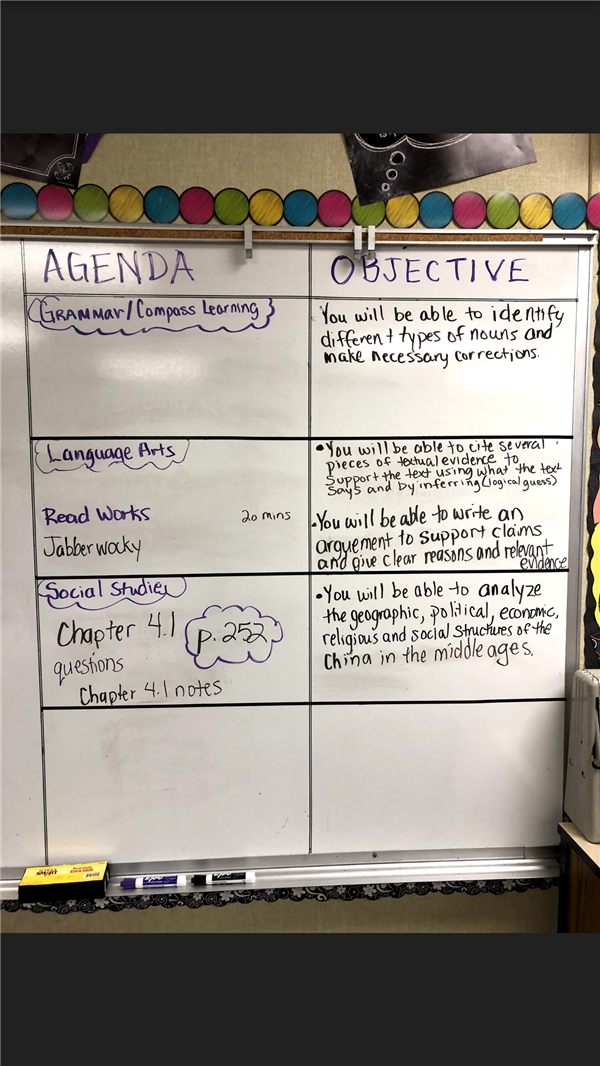 AGENDA
OBJECTIVE
GRAMMAR/Compass Learning
You will be able to identify
different types of nouns and
make necessary corrections.
Language Arts
Read Works 20 mins
Jabberwocky
• You will be able to cite several
pieces of textual evidence to
support the text using what the text
says and by inferring (logical guess)
• You will be able to write an
arguement to support claims
and give clear reasons and relevant
evidence
Social Studies
Chapter 4.1
p. 252
questions
Chapter 4.1 notes
• You will be able to analyze
the geographic, political, economic,
religious and social structures of the
China in the middle ages.
EXPO
EXPO